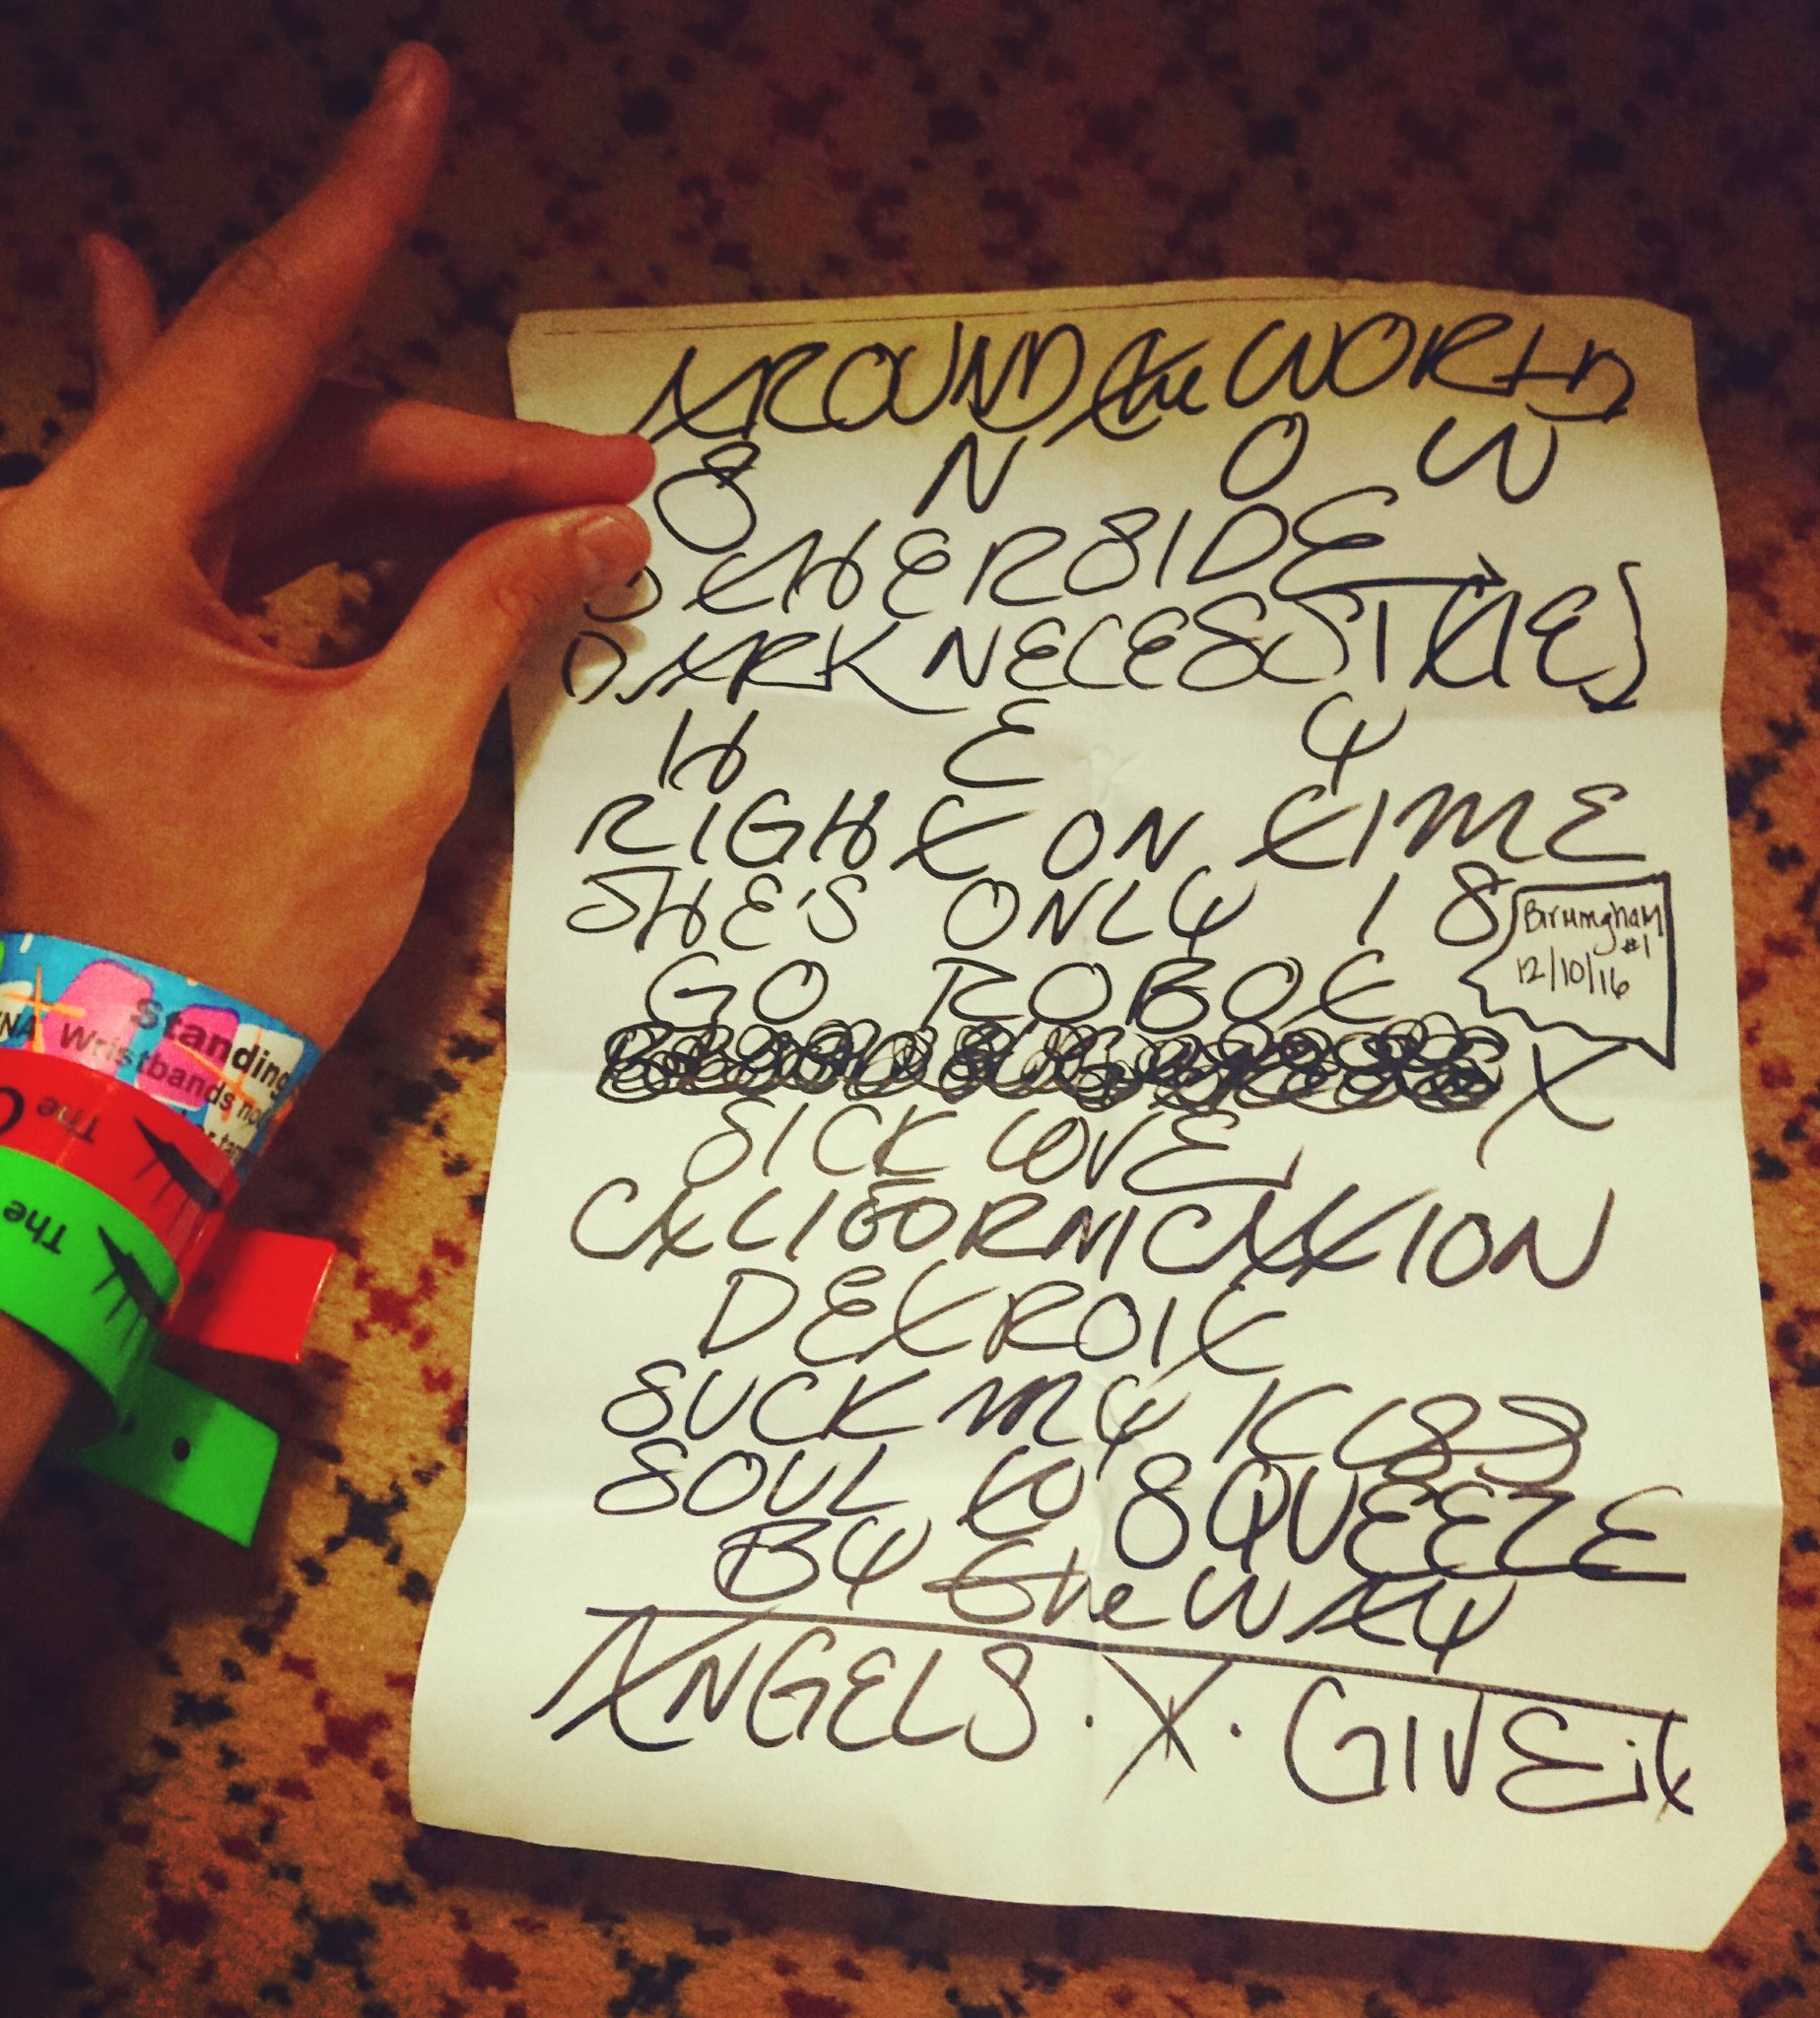 AROUND the WORLD
SNOW
OTHERSIDE
DARK NECESSITIES
HEY
RIGHT ON TIME
SHE'S ONLY 18
Birmingham
#1
12/10/16
GO ROBOT
X
SICK LOVE
CALIFORNICATION
DETROIT
SUCK MY KISS
SOUL to SQUEEZE
BY the WAY
ANGELS . X . GIVE it
Standing
Wristbands no
The
The